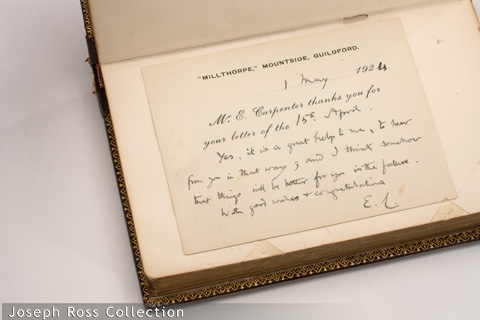 "MILLTHORPE," MOUNTSIDE, GUILDFORD.
1 May 1924
Mr. E. Carpenter thanks you for
your letter of the 15th April.
Yes, it is a great help to me, to hear
from you in that way; and I think somehow
that things will be better for you in the future.
With good wishes & congratulations
E. C.
Joseph Ross Collection